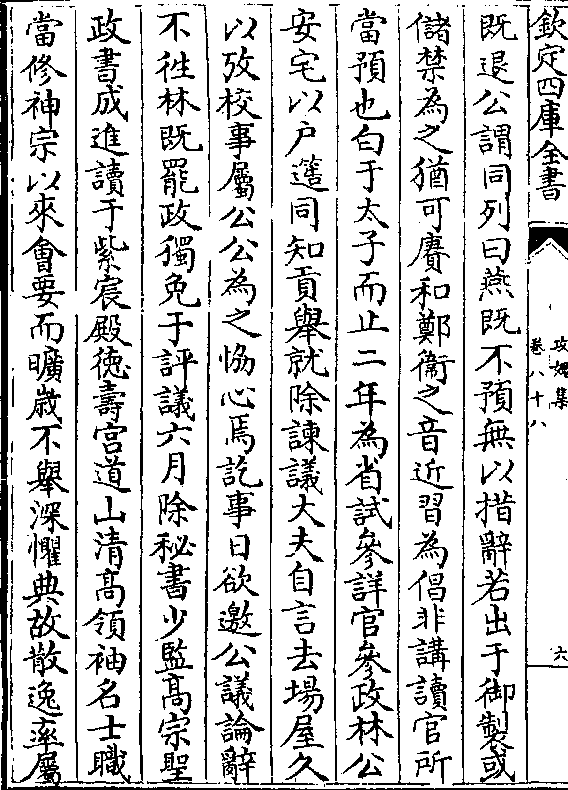 欽定四庫全書
攻媿集
卷八十八
六
既退公謂同列曰燕既不預無以措辭若出于御製或
儲禁為之猶可賡和鄭衞之音近習為倡非講讀官所
當預也白于太子而止二年為省試參詳官參政林公
安宅以户簉同知貢舉就除諫議大夫自言去場屋久
以攷校事屬公公為之恊心焉訖事日欲邀公議論辭
不徃林既罷政獨免于評議六月除秘書少監髙宗聖
政書成進讀于紫宸殿徳壽宫道山清髙領袖名士職
當修神宗以來會要而曠嵗不舉深懼典故散逸率屬